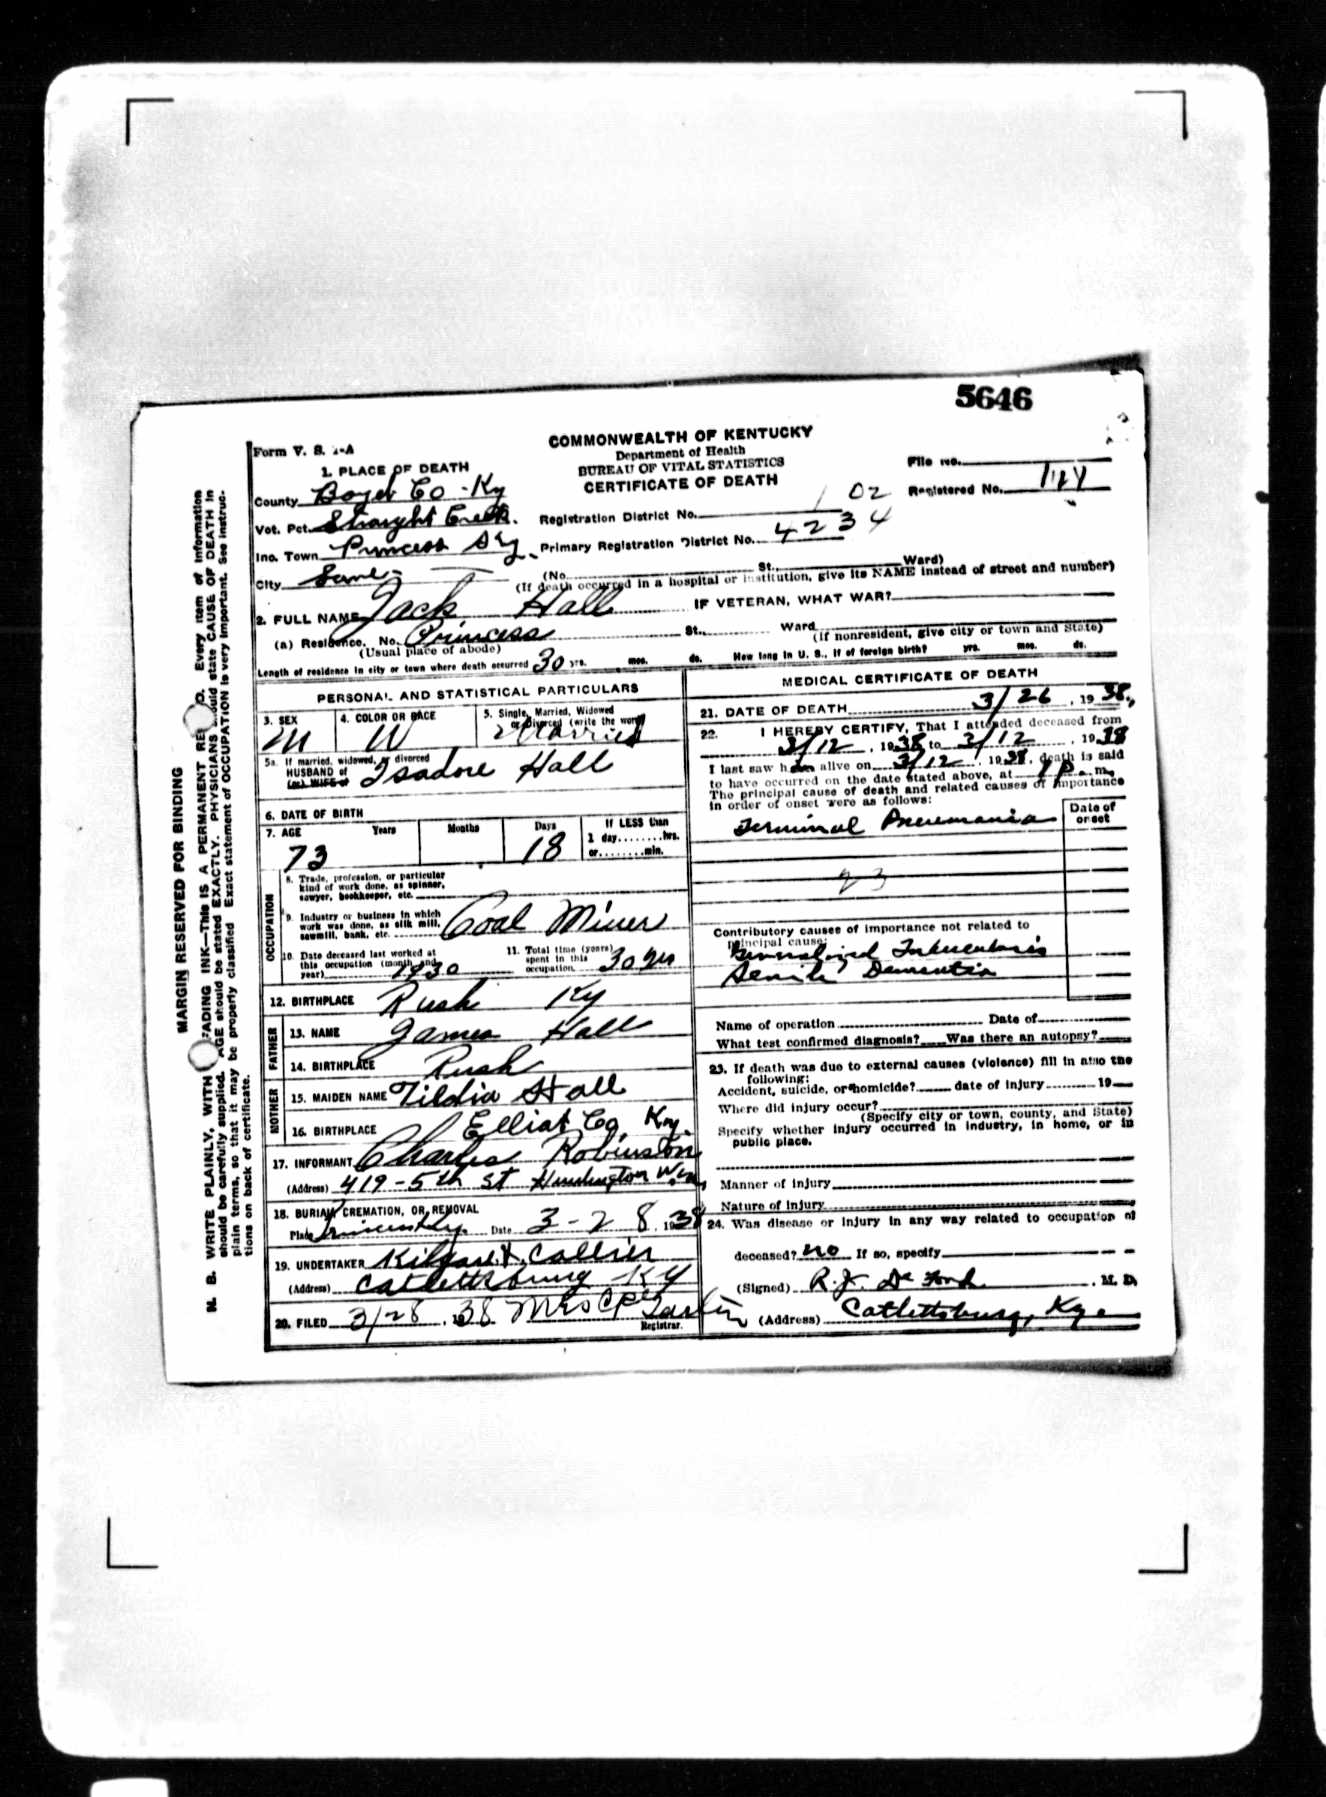 5646
Form V. S. 1-A
COMMONWEALTH OF KENTUCKY
Department of Health
BUREAU OF VITAL STATISTICS
CERTIFICATE OF DEATH
File No.
Registered No.
1. PLACE OF DEATH
County Boyd Co - Ky
Vot. Pct. Straight Creek.
Inc. Town Princess Ky
City Same
Registration District No. 102
Primary Registration District No. 4234
(No. St., Ward)
(If death occurred in a hospital or institution, give its NAME instead of street and number)
2. FULL NAME Jack Hall
IF VETERAN, WHAT WAR?
(a) Residence. No. Princess St., Ward
(Usual place of abode)
(If nonresident, give city or town and State)
Length of residence in city or town where death occurred 30 yrs. mos. ds. How long in U. S., if of foreign birth? yrs. mos. ds.
PERSONAL AND STATISTICAL PARTICULARS
3. SEX M
4. COLOR OR RACE W
5. Single, Married, Widowed or Divorced (write the word) Married
5a. If married, widowed, or divorced
HUSBAND of
(or) WIFE of Isadore Hall
6. DATE OF BIRTH
7. AGE Years Months Days
73 18
If LESS than
1 day........hrs.
or........min.
OCCUPATION
8. Trade, profession, or particular
kind of work done, as spinner,
sawyer, bookkeeper, etc.
9. Industry or business in which
work was done, as silk mill,
sawmill, bank, etc. Coal Miner
10. Date deceased last worked at
this occupation (month and
year) 1930
11. Total time (years)
spent in this
occupation 30 yrs
12. BIRTHPLACE Rush Ky
FATHER
13. NAME James Hall
14. BIRTHPLACE Rush
MOTHER
15. MAIDEN NAME Tildia Hall
16. BIRTHPLACE Elliat Co, Ky.
17. INFORMANT Charles Robinston
(Address) 419-5th St Huntington W.Va,
18. BURIAL, CREMATION, OR REMOVAL
Place Date 3-28, 1938
19. UNDERTAKER & Collier
(Address) Catlettsburg Ky
20. FILED 3/28, 1938 Mrs
Registrar.
MEDICAL CERTIFICATE OF DEATH
21. DATE OF DEATH 3/26, 1938.,
22. I HEREBY CERTIFY, That I attended deceased from
3/12, 1938 to 3/12, 1938
I last saw h alive on 3/12, 1938, death is said
to have occurred on the date stated above, at p. m.
The principal cause of death and related causes of importance
in order of onset were as follows:
Date of
onset
Terminal Pneumonia
23
Contributory causes of importance not related to
principal cause:
Generalized Tuberculosis
Senile Dementia
Name of operation Date of
What test confirmed diagnosis? Was there an autopsy?
23. If death was due to external causes (violence) fill in also the
following:
Accident, suicide, or homicide? date of injury 19
Where did injury occur?
(Specify city or town, county, and State)
Specify whether injury occurred in industry, in home, or in
public place.
Manner of injury
Nature of injury
24. Was disease or injury in any way related to occupation of
deceased? no If so, specify
(Signed) R. J. De Ford, M. D.
(Address) Catlettsburg, Ky.
MARGIN RESERVED FOR BINDING
N. B. WRITE PLAINLY, WITH ADING INK—This IS A PERMANENT RE D. Every item of information
should be carefully supplied. AGE should be stated EXACTLY. PHYSICIANS should state CAUSE OF DEATH in
plain terms, so that it may be properly classified. Exact statement of OCCUPATION is very important. See instruc-
tions on back of certificate.